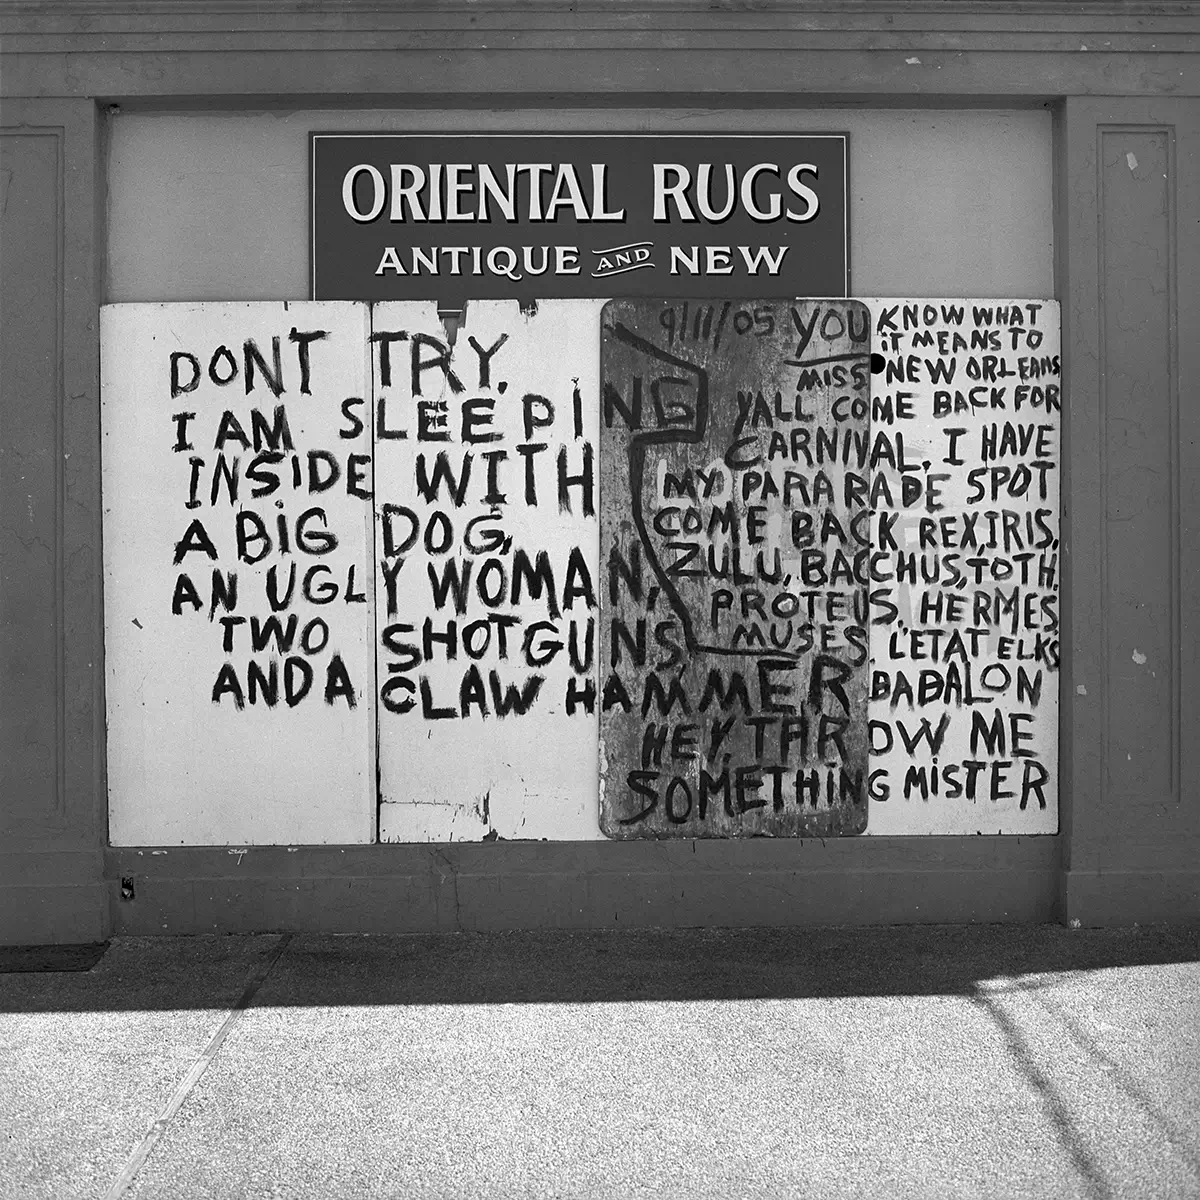 ORIENTAL RUGS
ANTIQUE AND NEW
DONT TRY.
I AM SLEEPING
INSIDE WITH
A BIG DOG,
AN UGLY WOMAN,
TWO SHOTGUNS,
AND A CLAW HAMMER
9/11/05 YOU KNOW WHAT
iT MEANS TO
MISS NEW ORLEANS
YALL COME BACK FOR
CARNIVAL. I HAVE
MY PARARADE SPOT
COME BACK REX, IRIS,
ZULU, BACCHUS, TOTH,
PROTEUS, HERMES,
MUSES, L'ETAT ELKS
BABALON
HEY, THROW ME
SOMETHING MiSTER